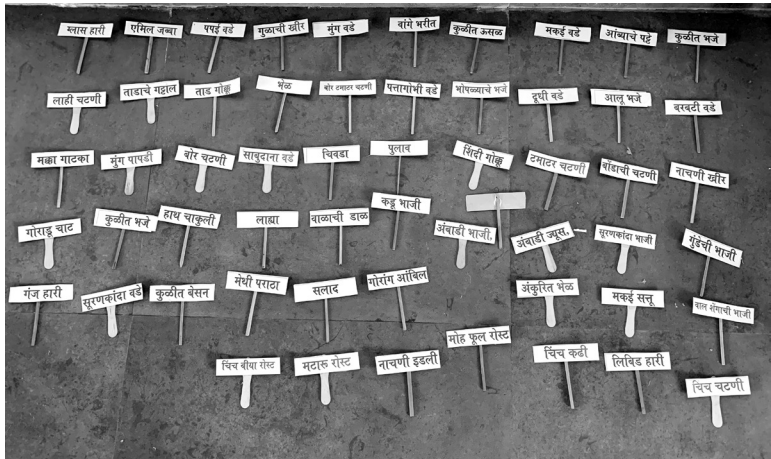 ग्लास हारी
एमिल जब्बा
पपई वडे
गुळाची खीर
मुंग वडे
वांगे भरीत
कुळीत ऊसळ
मकई वडे
आंब्याचे पट्टे
कुळीत भजे
लाही चटणी
ताडाचे गट्टाल
ताड गोकू
भेळ
बोर टमाटर चटणी
पत्तागोभी वडे
भोपळ्याचे भजे
दूधी वडे
आलू भजे
बरबटी वडे
मक्का गाटका
मुंग पापडी
बोर चटणी
साबुदाना वडे
चिवडा
पुलाव
शिंदी गोकू
टमाटर चटणी
बोंडाची चटणी
नाचणी खीर
गोराडू चाट
कुळीत भजे
हाथ चाकुली
लाह्या
वाळाची डाळ
कडू भाजी
अंबाडी भाजी,
अंबाडी ज्यूस,
सूरणकांदा भाजी
गुंडेची भाजी
गंज हारी
सूरणकांदा वडे
कुळीत बेसन
मेथी पराठा
सलाद
गोरांग आंबिल
अंकुरित भेळ
मकई सत्तू
वाल शेंगाची भाजी
चिंच बीया रोस्ट
मटारू रोस्ट
नाचणी इडली
मोह फूल रोस्ट
चिंच कढी
लिबिड हारी
चिच चटणी